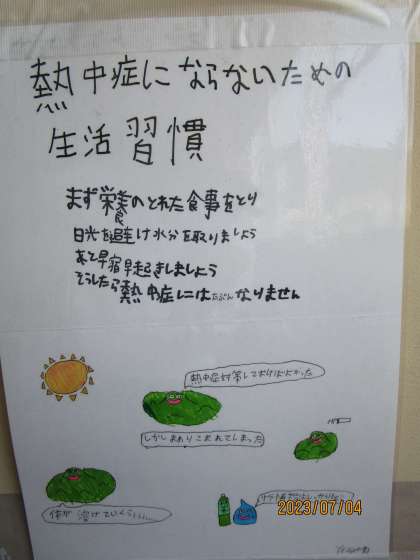 熱中症にならないための
生活習慣
まず栄養のとれた食事をとり
日光を避け水分を取りましよう
あと早宿早起きしましよう
そうしたら熱中症にはたぶんなりません
熱中症対策しておけばよかった
しかしまわりこまれてしまった
体が溶けていくぅぅ
2023/07/04